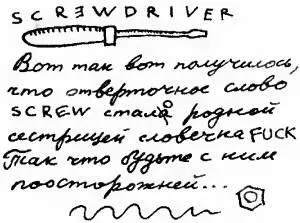 SCRƎWDRIVER
Вот так вот получилось,
что отверточное слово
SCREW стало родной
сестрицей словечка FUCK
Так что будьте с ним
поосторожней...